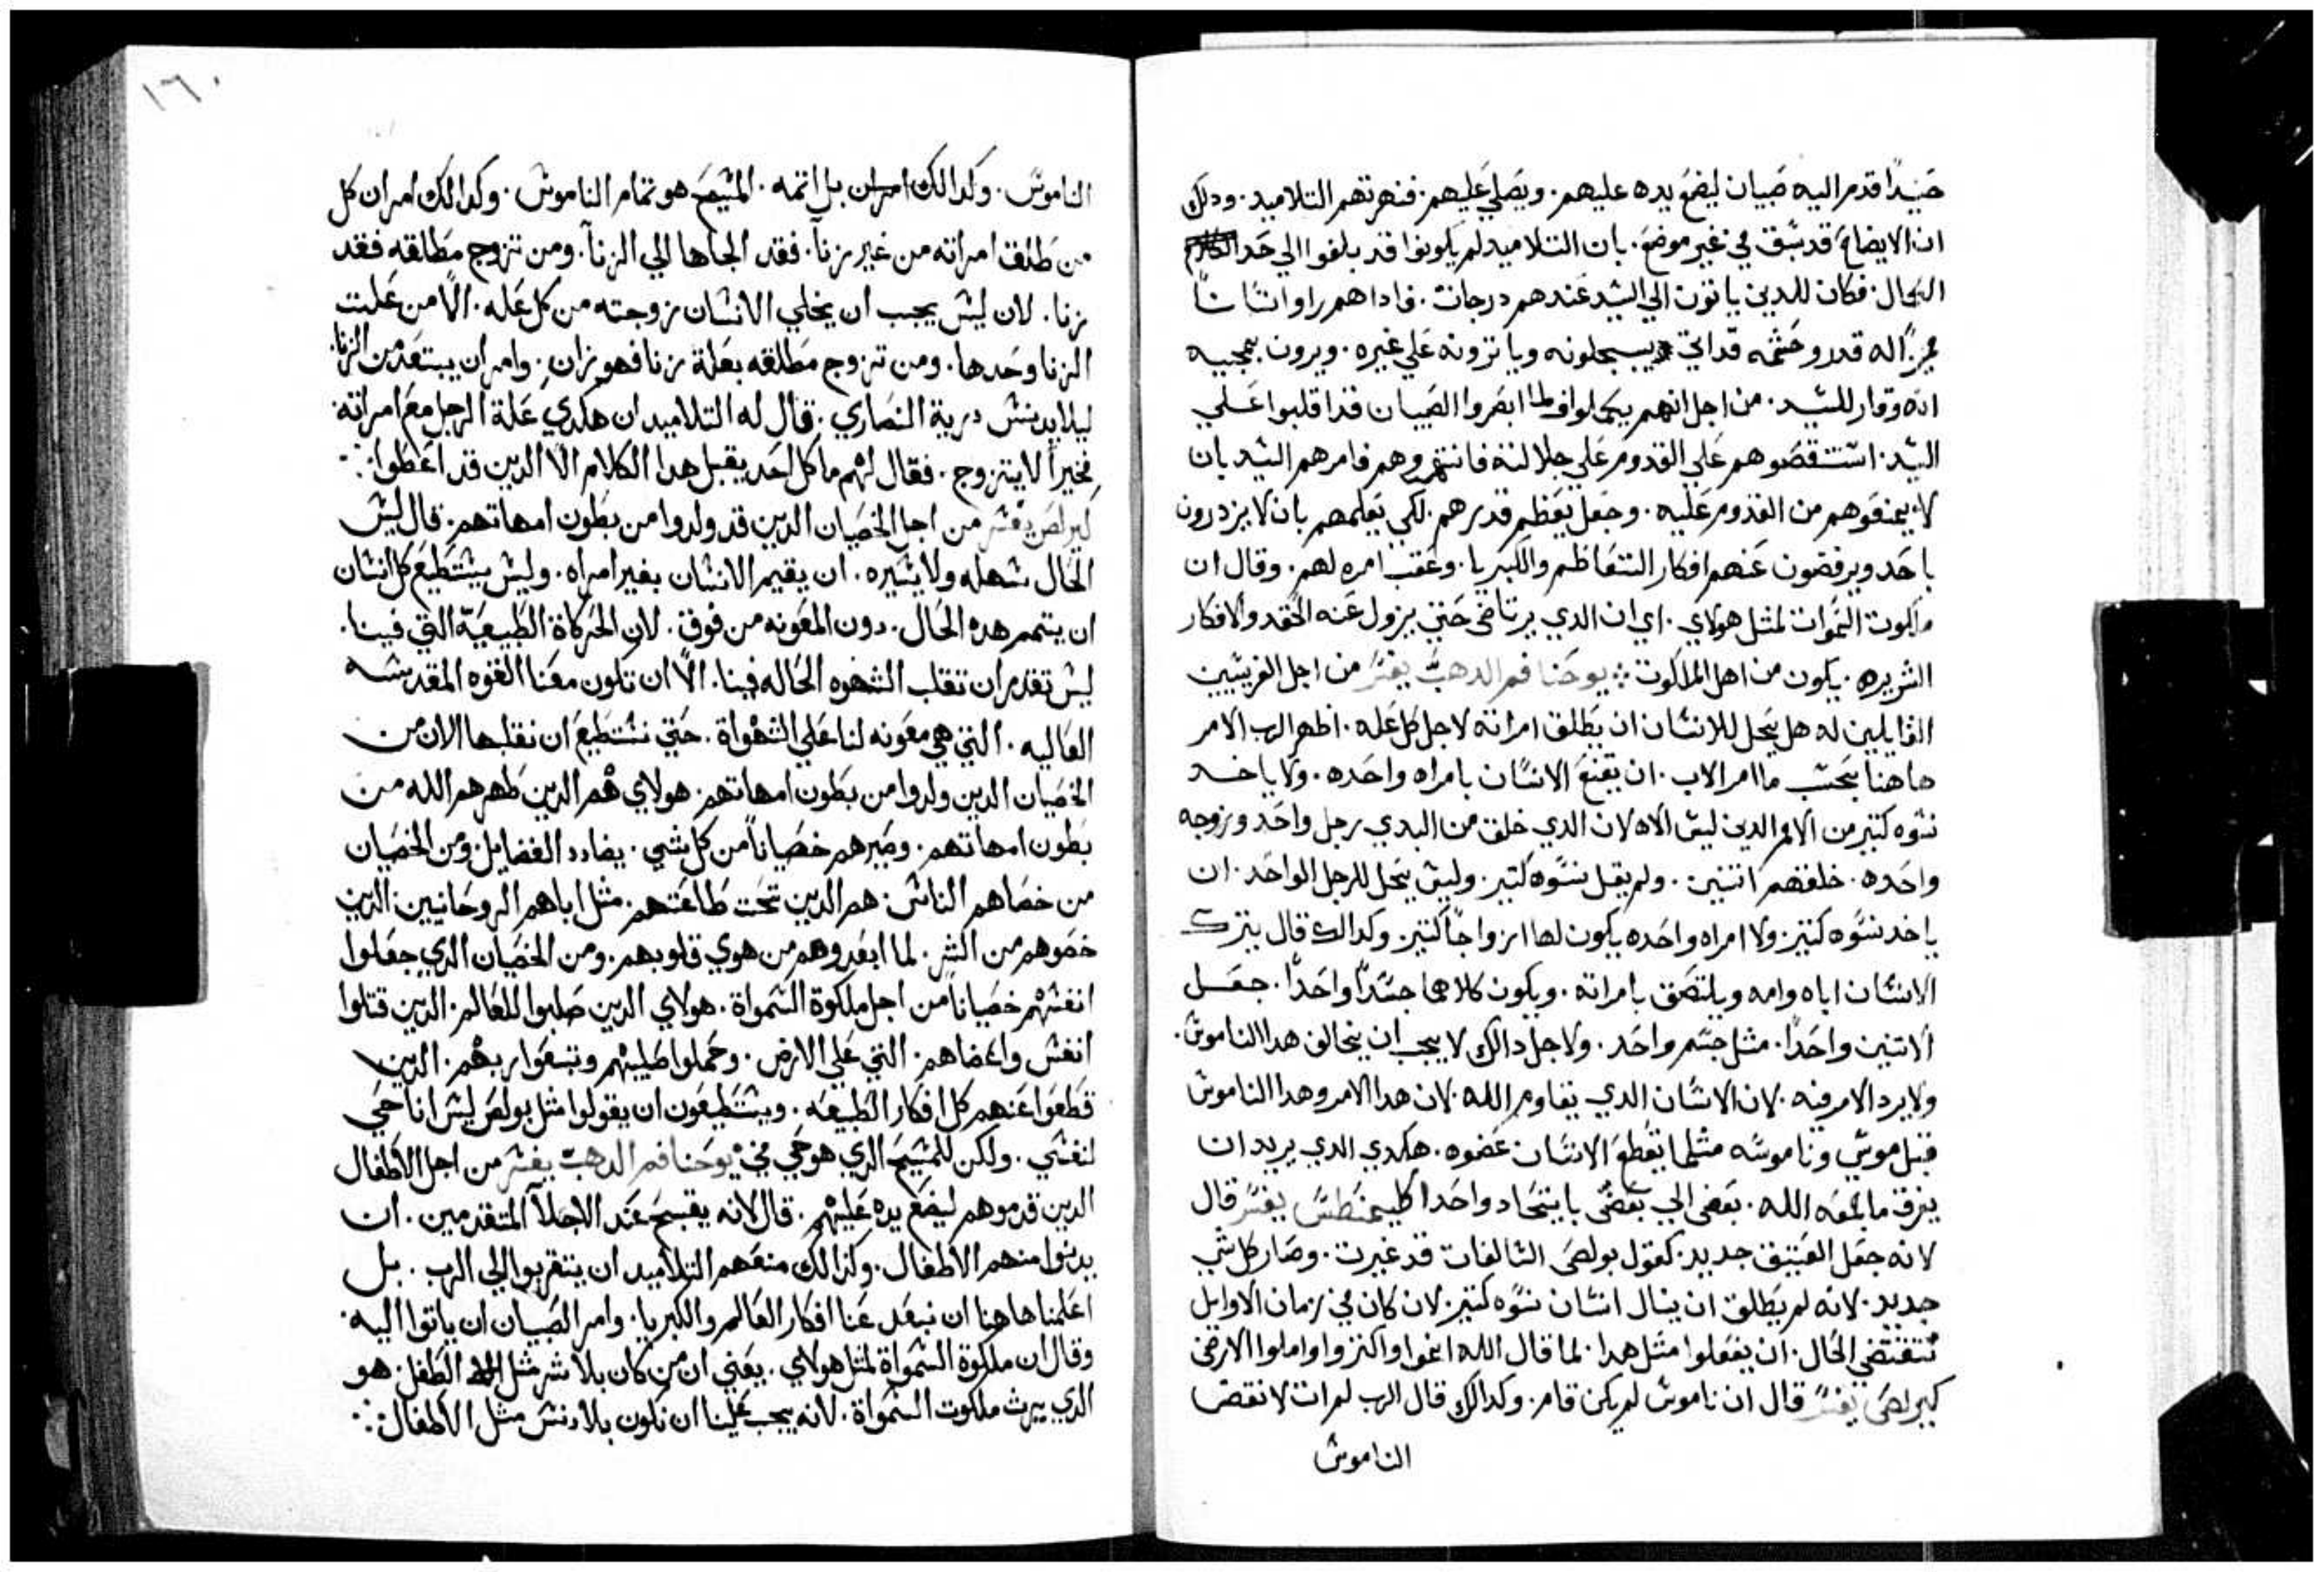 حنيدًا قدم اليه صبيان ليضع يده عليهم. ويصلي عليهم. فنهرتهم التلاميد. ودلك
ان الايضاع قد سبق في غير موضع. بان التلاميد لم يكونوا قد بلغوا الي حد الكلام
الكمال. فكان للدين ياتون الي السيد عندهم درجات. فادا هم راوا انسانًا
له قدر وحشمه قد اتي يبجلونه ويا تزونه علي غيره. ويرون بمجييه
انه وقار للسيد. من اجل انهم لما ابصروا الصبيان قد اقبلوا علي
السيد. استنقصوهم علي القدوم علي جلالته فانتهروهم فامرهم السيد بان
لا يمنعوهم من القدوم عليه. وجعل يعظم قدرهم. لكي يعلمهم بان لا يزدرون
باحد ويرفضون عنهم افكار التعاظم والكبريا. وعقب امره لهم. وقال ان
ملكوت السموات لمثل هولاي. اي ان الدي يرتاض حتي يزول عنه الحقد والافكار
الشريره. يكون من اهل الملكوت ⁘ يوحنا فم الدهب يفسر من اجل الفريسيين
القايلين له هل يحل للانسان ان يطلق امراته لاجل كل عله. اظهر الرب الامر
هاهنا بحسب ما امر الاب. ان يقنع الانسان بامراه واحده. ولا ياخد
نسوه كتير من الامم الدين ليس الاه لان الدي خلق من البدي رجل واحد وزوجه
واحده. خلقهم اتنين. ولم يقل نسوه كتير. وليس يحل للرجل الواحد. ان
ياخد نسوه كتير. ولا امراه واحده يكون لها ازواجًا كتير. وكدالك قال يترك
الانسان اباه وامه ويلتصق بامراته. ويكون كلاهما جسدًا واحدًا. جعل
الاتنين واحدًا. مثل جسم واحد. ولاجل دالك لا يجب ان يخالف هدا الناموس.
ولا يرد الامر فيه. لان الانسان الدي يقاوم الله. لان هدا الامر وهدا الناموس
قبل موسي وناموسه مثلما يقطع الانسان عضوه. هكدي الدي يريد ان
يفرق ما جمعه الله. بعض الي بعض باتحاد واحد اكليمنطس يفسر قال
لانه جعل العتيق جديد. كقول بولص السالفات قد غبرت. وصار كل شي
جديد. لانه لم يطلق ان ينال انسان نسوه كتير. لان كان في زمان الاوايل
تقتضي الحال. ان يفعلوا مثل هدا. لما قال الله انموا واكتروا واملوا الارض
كيرلص يفسر قال ان ناموس لم يكن قام. وكدالك قال الرب لم ات لانقض
الناموس
١٦٠
الناموس. وكدالك امر ان بل اتمه. المسيح هو تمام الناموس. وكدالك امر ان كل
من طلق امراته من غير زنآ. فقد الجاها الي الزنآ. ومن تزوج مطلقه فقد
زنا. لان ليس يجب ان يخلي الانسان زوجته من كل عله. الا من علت
الزنا وحدها. ومن تزوج مطلقه بعلة زنا فهو زان. وامر ان يبتعد من الزنا.
ليلا يدنس درية النصاري. قال له التلاميد ان هكدي علة الرجل مع امراته.
فخيرًا لا يتزوج. فقال لهم ما كل احد يقبل هدا الكلام الا الدين قد اعطوا ⁘
كيرلص يفسر من اجل الخصيان الدين قد ولدوا من بطون امهاتهم. قال ليس
الحال سهله ولا يسيره. ان يقيم الانسان بغير امراه. وليس يستطيع كل انسان
ان يتمم هده الحال. دون المعونه من فوق. لان الحركاة الطبيعيه التي فينا.
ليس تقدر ان تقلب الشهوه الحاله فينا. الا ان تكون معنا القوه المقدسه
العاليه. التي هي معونه لنا علي الشهواة. حتي نستطيع ان نقلبها الان من
الخصيان الدين ولدوا من بطون امهاتهم. هولاي هم الدين طهرهم الله من
بطون امهاتهم. وصيرهم خصيانًا من كل شي. يضادد الفضايل. ومن الخصيان
من خصاهم الناس. هم الدين تحت طاعتهم. مثل اباهم الروحانيين. الدين
خصوهم من الشر. لما ابعدوهم من هوي قلوبهم. ومن الخصيان الدي جعلوا
انفسهم خصيانًا من اجل ملكوة السمواة. هولاي الدين صلبوا للعالم. الدين قتلوا
انفس واعضاهم. التي علي الارض. وحملوا صليبهم وتبعوا ربهم. الدين
قطعوا عنهم كل افكار الطبيعه. ويستطيعون ان يقولوا مثل بولص ليس انا حي
لنفسي. ولكن للمسيح الدي هو حي في يوحنا فم الدهب يفسر من اجل الاطفال
الدين قدموهم ليضع يده عليهم. قال لانه يقبح عند الاجلا المتقدمين. ان
يدنوا منهم الاطفال. وكدالك منعهم التلاميد ان يتقربوا الي الرب. بل
اعلمنا هاهنا ان نبعد عنا افكار العالم والكبريا. وامر الصبيان ان ياتوا اليه.
وقال ان ملكوة السمواة لمثل هولاي. يعني ان من كان بلا شر مثل الطفل. هو
الدي يرث ملكوت السمواة. لانه يجب علينا ان نكون بلا دنس مثل الاطفال ⁘